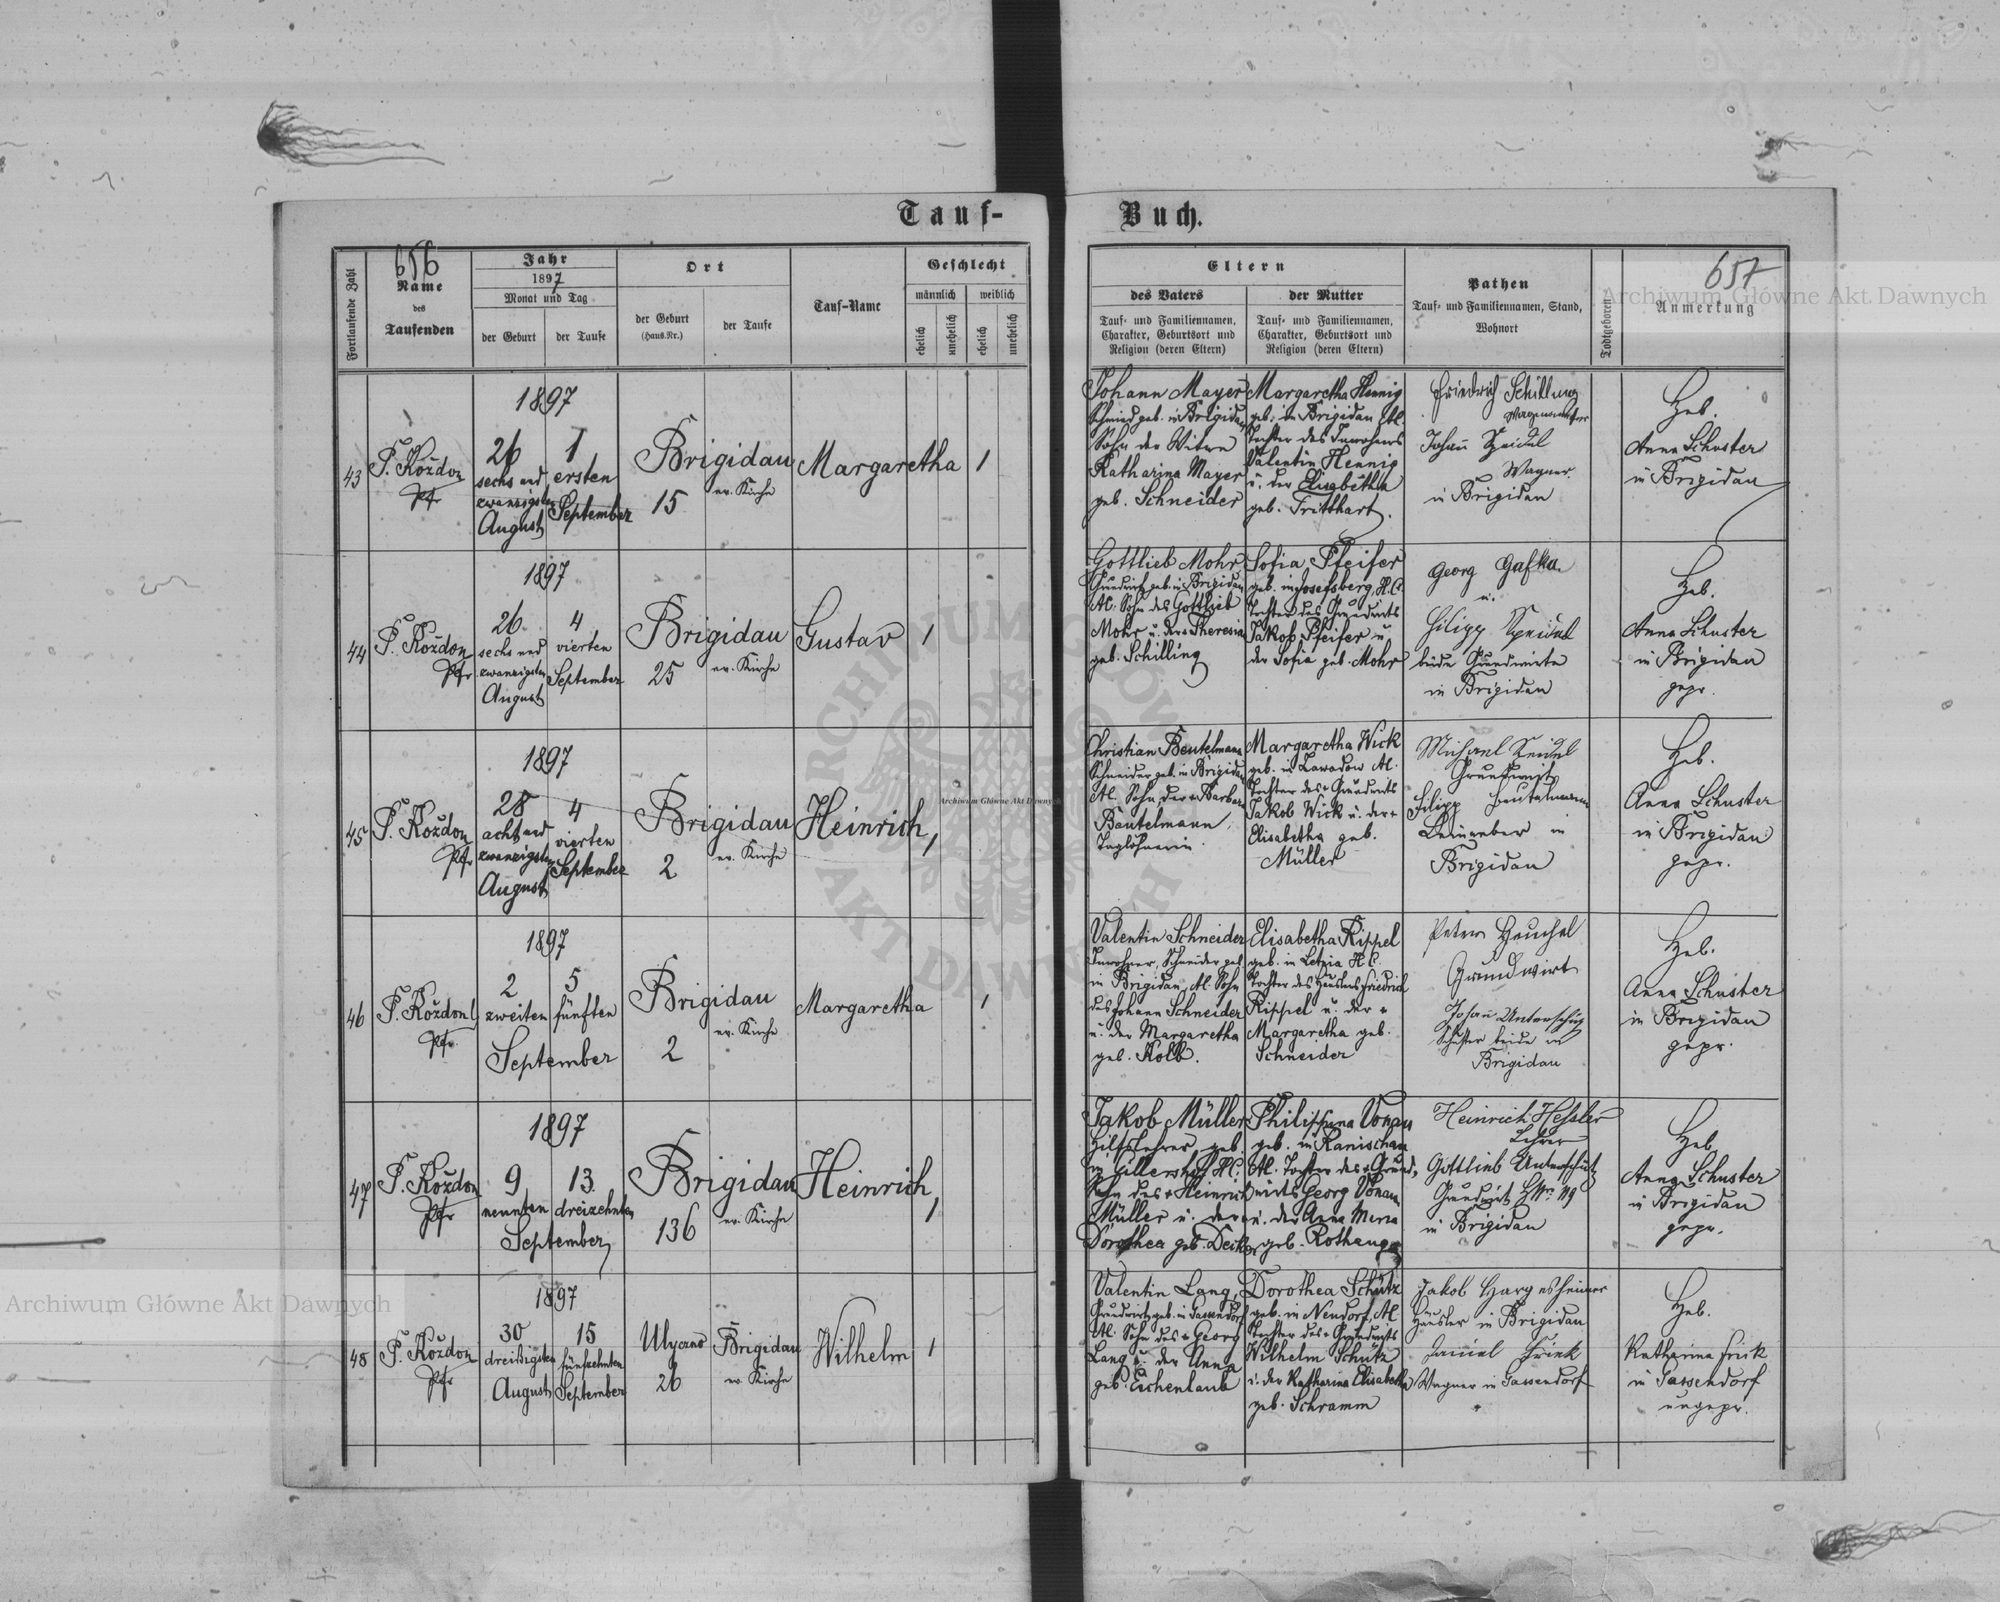 Tauf-
Buch.
656
Fortlaufende Zahl
Name
des
Taufenden
Jahr
1897
Monat und Tag
der Geburt
der Taufe
Ort
der Geburt
(Haus.Nr.)
der Taufe
Tauf-Name
Geschlecht
männlich
weiblich
ehelich
unehelich
ehelich
unehelich
Eltern
des Vaters
Tauf- und Familiennamen,
Charakter, Geburtsort und
Religion (deren Eltern)
der Mutter
Tauf- und Familiennamen,
Charakter, Geburtsort und
Religion (deren Eltern)
Pathen
Tauf- und Familiennamen, Stand,
Wohnort
Todtgeboren
657
Anmerkung
43
P. Koždon
Pfr
1897
26
sechs und
zwanzigsten
August
1
ersten
September
Brigidau
15
ev. Kirche
Margaretha
1
Johann Mayer
Schmied geb. in Brigidau
Sohn der Witwe
Katharina Mayer
geb. Schneider
Margaretha Hennig
geb. in Brigidau
Tochter des Inwohners
Valentin Hennig
u. der
geb. Tritthart.
Friedrich Schilling
Johann Speidel
Wagner
in Brigidau
Heb.
Anna Schuster
in Brigidau
44
P. Koždon
Pfr
1897
26
sechs und
zwanzigsten
August
4
vierten
September
Brigidau
25
ev. Kirche
Gustav
1
Gottlieb Mohr
Grundwirt geb. in Brigidau
A.C. Sohn des Gottlieb
Mohr u. der Theresia
geb. Schilling
Sofia Pfeifer
geb. in Josefsberg H.C.
Tochter des Grundwirts
Jakob Pfeifer u.
der Sofia geb. Mohr
Georg
u.
Filipp Speidel
beide Grundwirte
in Brigidau
Heb.
Anna Schuster
in Brigidau
gepr.
45
P. Koždon
Pfr
1897
28
acht und
zwanzigsten
August
4
vierten
September
Brigidau
2
ev. Kirche
Heinrich
1
Christian Beutelmann
Schneider geb. in Brigidau
A.C. Sohn der Barbara
Bautelmann,
Taglöhnerin
Margaretha Wick
geb. in
Tochter des Grundwirts
Jakob Wick u. der
Elisabetha geb.
Müller
Michael Speidel
Grundwirt
Filipp Beutelmann
in
Brigidau
Heb.
Anna Schuster
in Brigidau
gepr.
46
P. Koždon
Pfr.
1897
2
zweiten
5
fünften
September
Brigidau
2
ev. Kirche
Margaretha
1
Valentin Schneider
Inwohner, Schneider geb.
in Brigidau, A.C. Sohn
des Johann Schneider
u. der Margaretha
geb. Kolb.
Elisabetha Rippel
geb. in Letnia H.C.
Tochter des Häuslers Friedrich
Rippel u. der
Margaretha geb.
Schneider
Peter Heuchel
Grundwirt
Johann Unterschütz
Schuster beide in
Brigidau
Heb.
Anna Schuster
in Brigidau
gepr.
47
P. Koždon
Pfr
1897
9
neunten
13
dreizehnten
September
Brigidau
136
ev. Kirche
Heinrich
1
Jakob Müller
Hilfslehrer geb.
in Gillershof H.C.
Sohn des Heinrich
Müller u. der
Dorothea geb.
Philippina Vonau
geb. in Ranischau
A.C. Tochter des Grund-
wirts Georg Vonau
u. der Anna Maria
geb.
Heinrich Hessler
Lehrer
Gottlieb Unterschütz
Grundwirt
in Brigidau
Heb.
Anna Schuster
in Brigidau
gepr.
48
P. Koždon
Pfr
1897
30
dreißigsten
August
15
fünfzehnten
September
Ulyczno
26
Brigidau
ev. Kirche
Wilhelm
1
Valentin Lang,
Grundwirt geb. in Gassendorf
A.C. Sohn des Georg
Lang u. der Anna
geb. Eichenlaub
Dorothea Schütz
geb. in Neudorf, A.C.
Tochter des Grundwirts
Wilhelm Schütz
u. der Katharina Elisabetha
geb. Schramm
Jakob Hargesheimer
Häusler in Brigidau
Daniel Frick
Wagner in Gassendorf
Heb.
Katharina Frick
in Gassendorf
ungepr.
Archiwum Główne Akt Dawnych
Archiwum Główne Akt Dawnych
Archiwum Główne Akt Dawnych